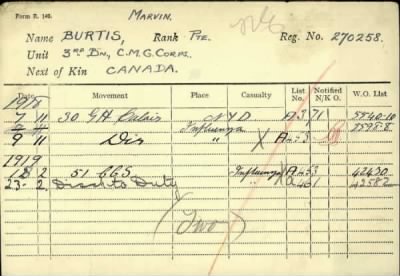 Form R. 140.
MARVIN.
Name BURTIS, Rank PTE. Reg. No. 270258.
Unit 3RD BN., C.M.G. CORPS.
Next of Kin CANADA.
Date Movement Place Casualty List No. Notified N/K O. W.O. List
1918
7 11 30 GH Calais NYD A371 5540-10
Influenza
9 11 Dis " X
1919
18 2 51 CCS Influenza 42430
23 2 Disch to Duty " 42582
(Two)